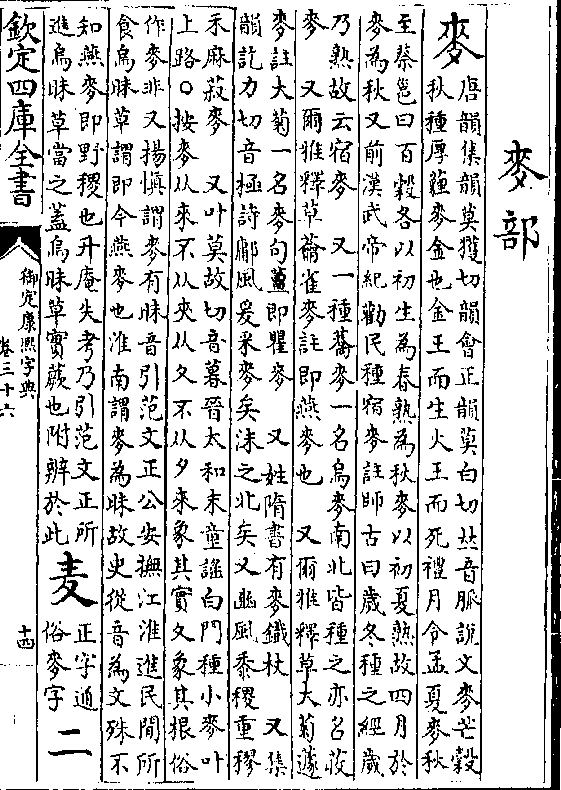 麥部
麥
唐韻集韻莫獲切韻會正韻莫白切𠀤音脈說文麥芒穀
秋種厚薶麥金也金王而生火王而死禮月令孟夏麥秋
至蔡邕曰百穀各以初生為春熟為秋麥以初夏熟故四月於
麥為秋又前漢武帝紀勸民種宿麥註師古曰歲冬種之經歲
乃熟故云宿麥 又一種蕎麥一名烏麥南北皆種之亦名荍
麥 又爾雅釋草蘥雀麥註即燕麥也 又爾雅釋草大菊蘧
麥註大菊一名麥句薑即瞿麥 又姓隋書有麥鐵杖 又集
韻訖力切音極詩鄘風爰采麥矣沬之北矣又豳風黍稷重穋
禾麻菽麥 又叶莫故切音暮晉太和末童謡白門種小麥叶
上路○按麥从來不从夾从夊不从夕來象其實夊象其根俗
作麥非又揚慎謂麥有昧音引范文正公安撫江淮進民間所
食烏昧草謂即今燕麥也淮南謂麥為昧故史從音為文殊不
知燕麥即野稷也升庵失考乃引范文正所
進烏昧草當之蓋烏昧草實蕨也附辨於此
麦
正字通
俗麥字
二
欽定四庫全書
御定康熙字典
卷三十六
十四